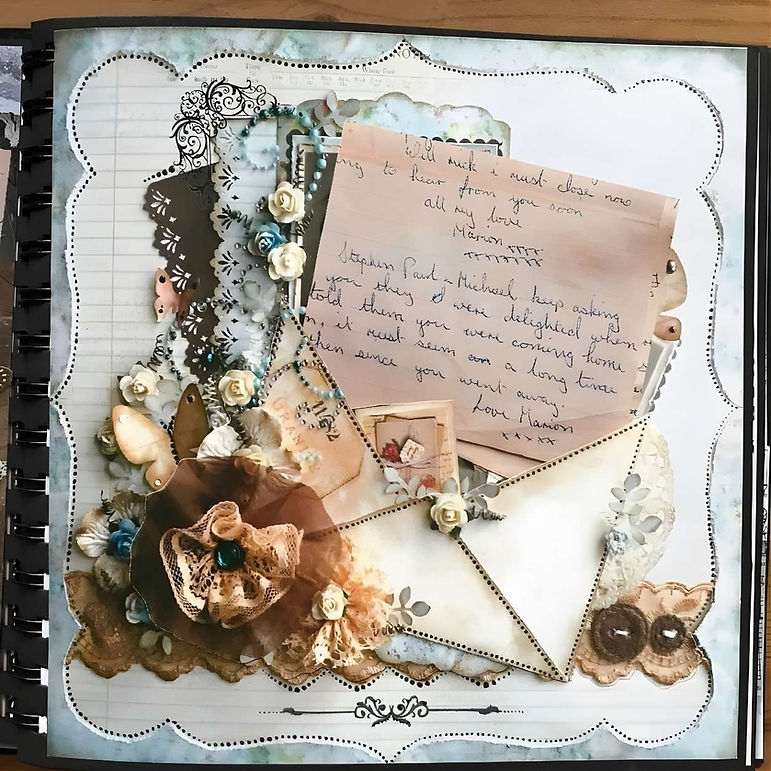 Well nick i must close now
ng to hear from you soon
all my love
Marion xxxx
xxxxxxx
Stephen Paul & Michael keep asking
you they were delighted when
told them you were coming home
it must seem a long time
then since you went away.
Love Marion
xxxxx